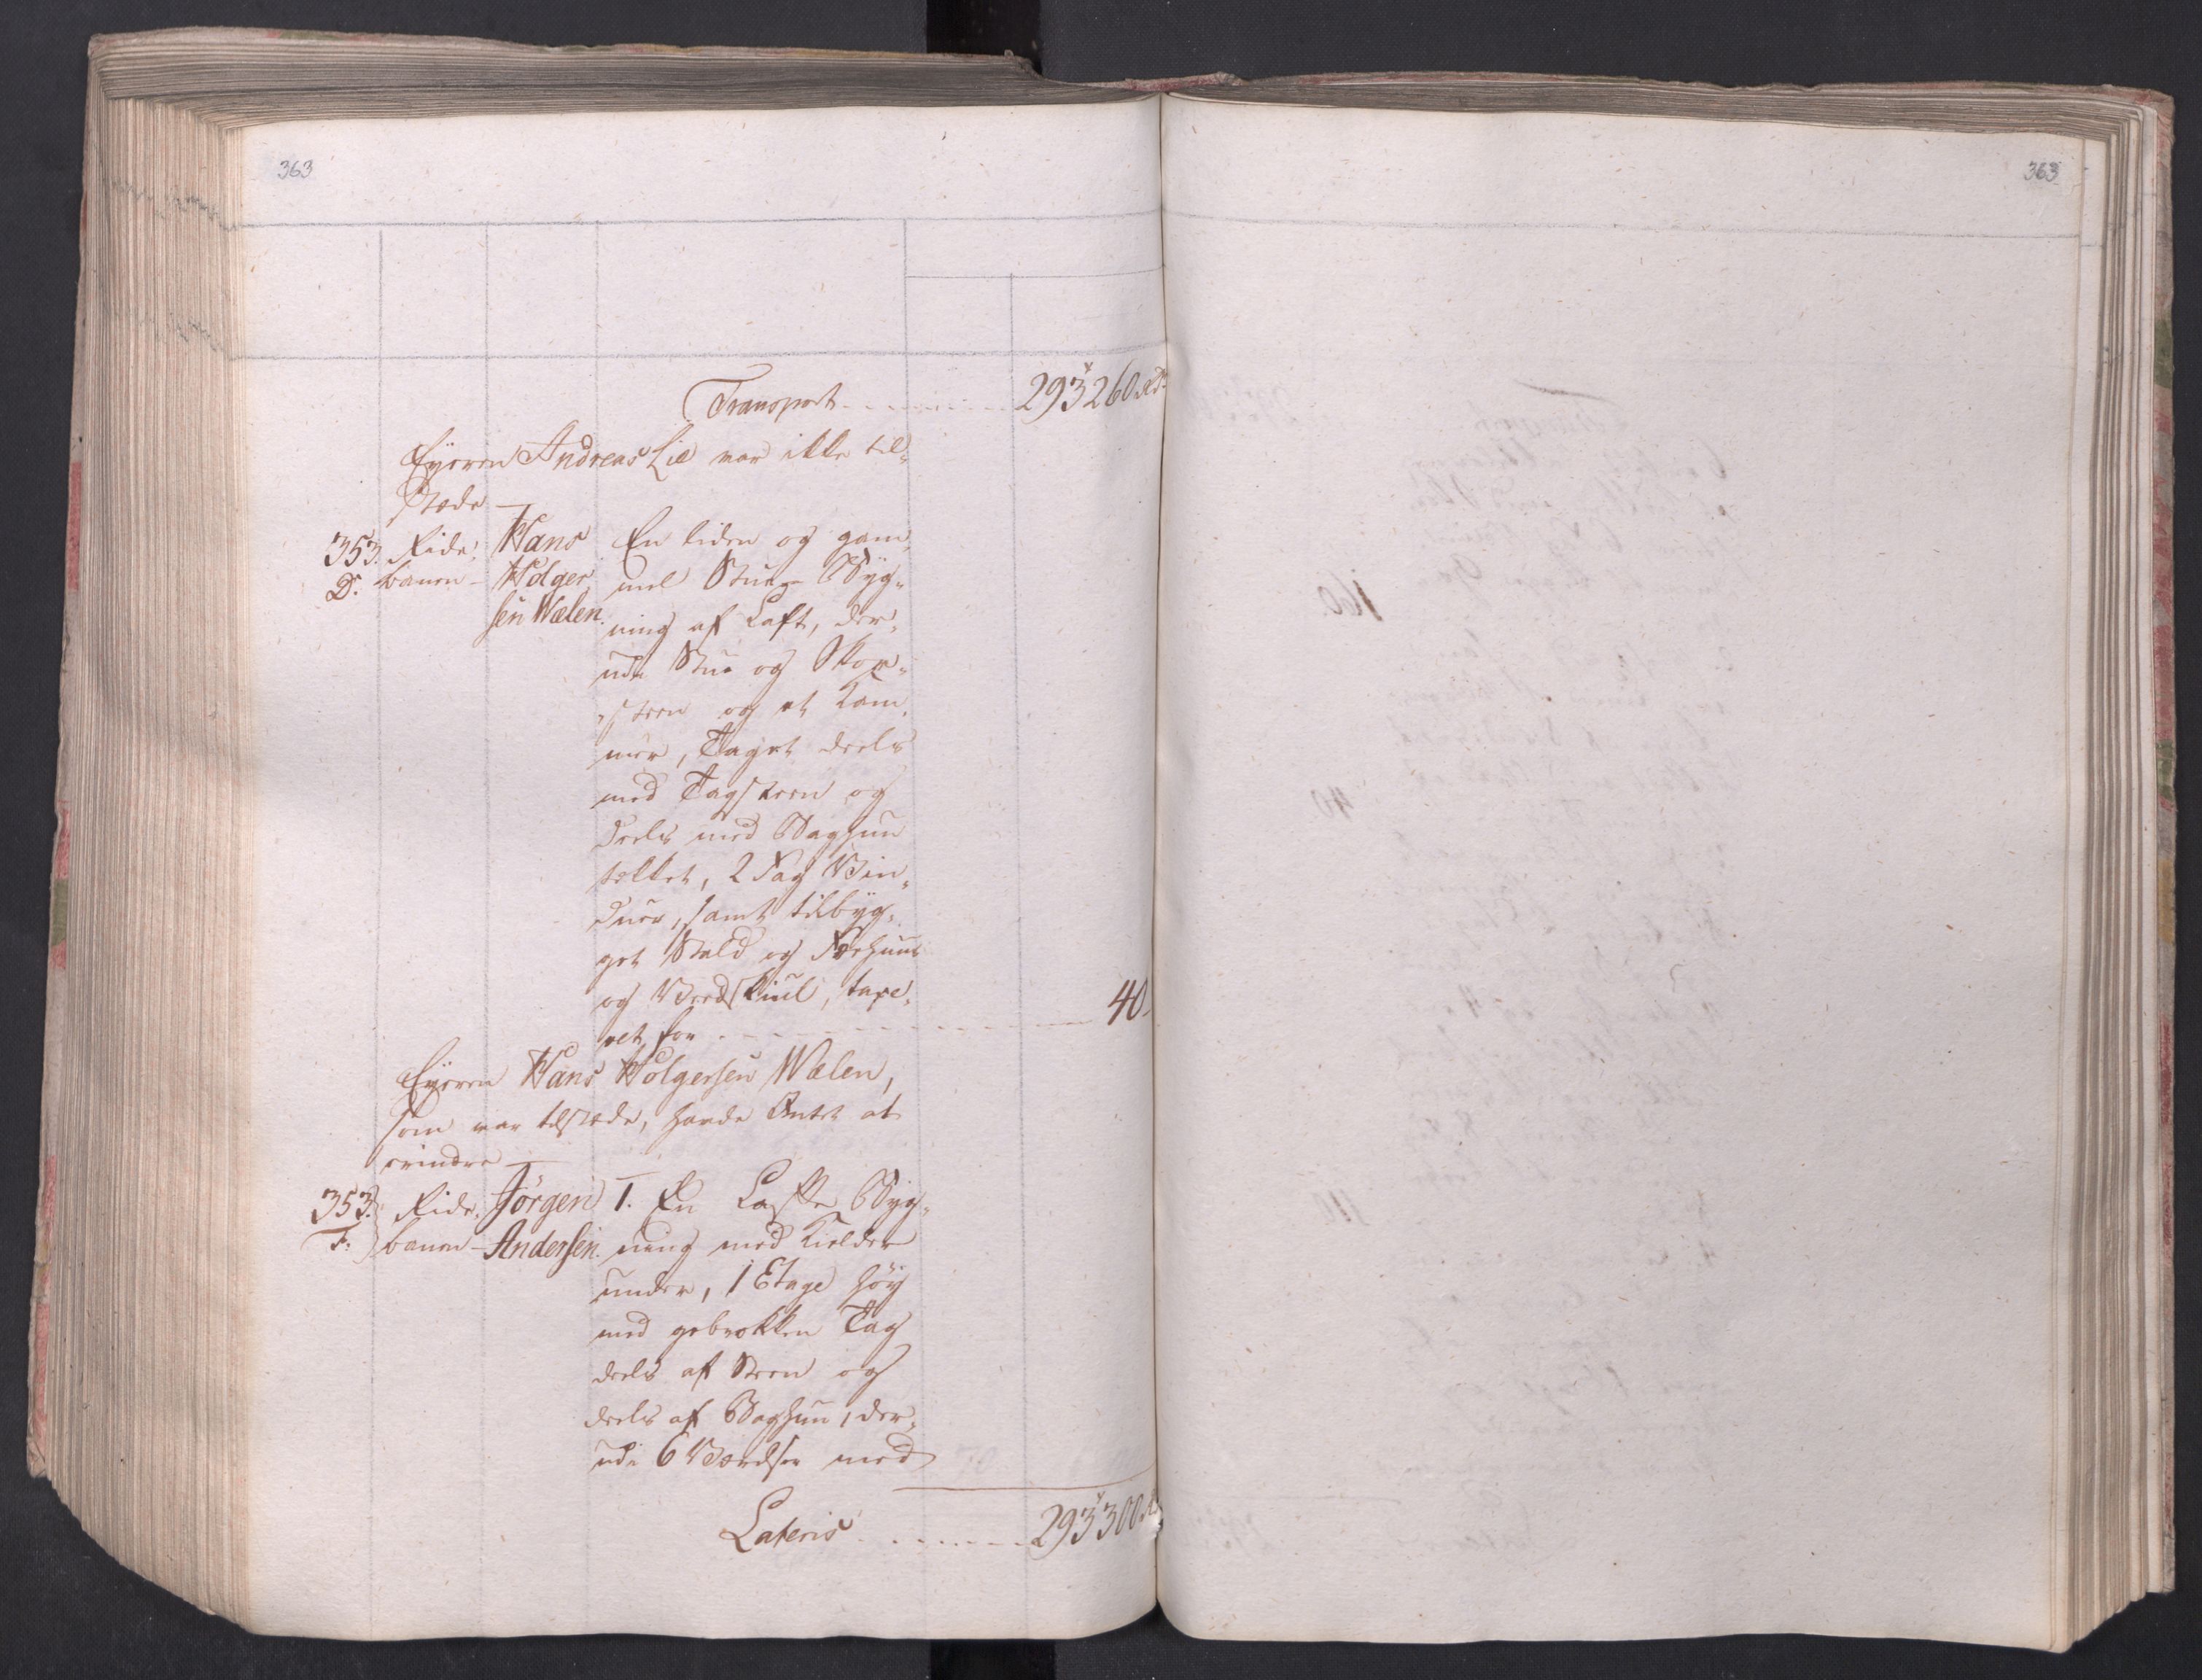 363
363
Transport . . . . . . . . 293260 Rd.
Eyeren Andreas Lie var ikke til-
stæde —
353. D. Ride- banen - Hans Holger- sen Wælen.
En liden og gam-
mel Stue Byg-
ning af Laft, der-
udi Stue og Skor-
steen og et Kam-
mer, Taget deels
med Tagsteen og
deels med Baghun
tækket, 2 Fag Vin-
duer, samt tilbyg-
get Stald og Foehuus
og Vedskiul, taxe-
ret for . . . . . . . . 40.
Eyeren Hans Holgersen Wælen,
som var tilstæde, havde Intet at
erindre —
353. F. Ride- banen - Jörgen Andersen.
1. En Lafte Byg-
ning med Kielder
under, 1 Etage höy
med gebrokken Tag
deels af Steen og
deels af Baghun, der-
udi 6 Værelser med
Lateris . . . . . . . 293300 Rd